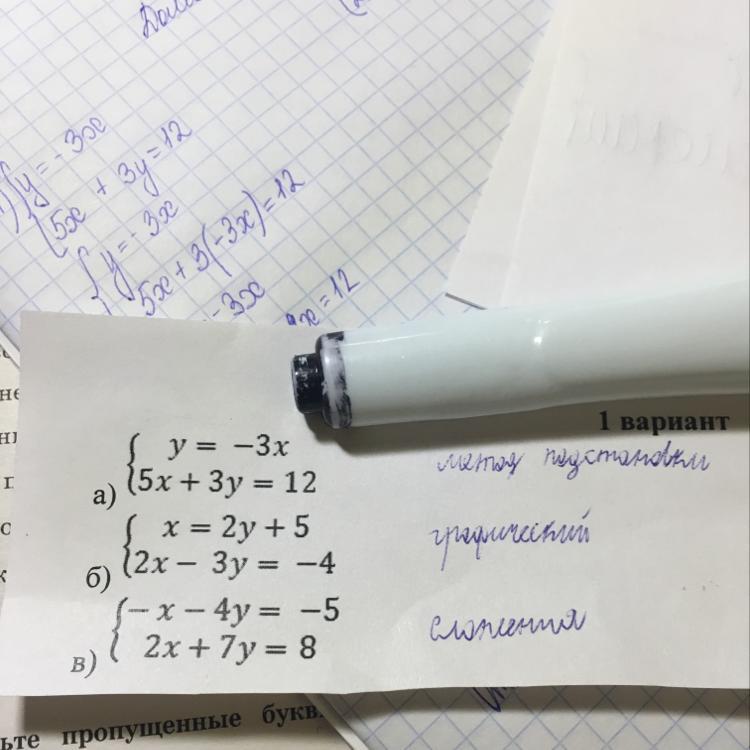 y = -3x
5x + 3y = 12
y = -3x
5x + 3(-3x) = 12
-3x
x = 12
1 вариант
а) { y = −3x
5x + 3y = 12
метод подстановки
б) { x = 2y + 5
2x − 3y = −4
графический
в) { − x − 4y = −5
2x + 7y = 8
сложения
ьте пропущенные букв